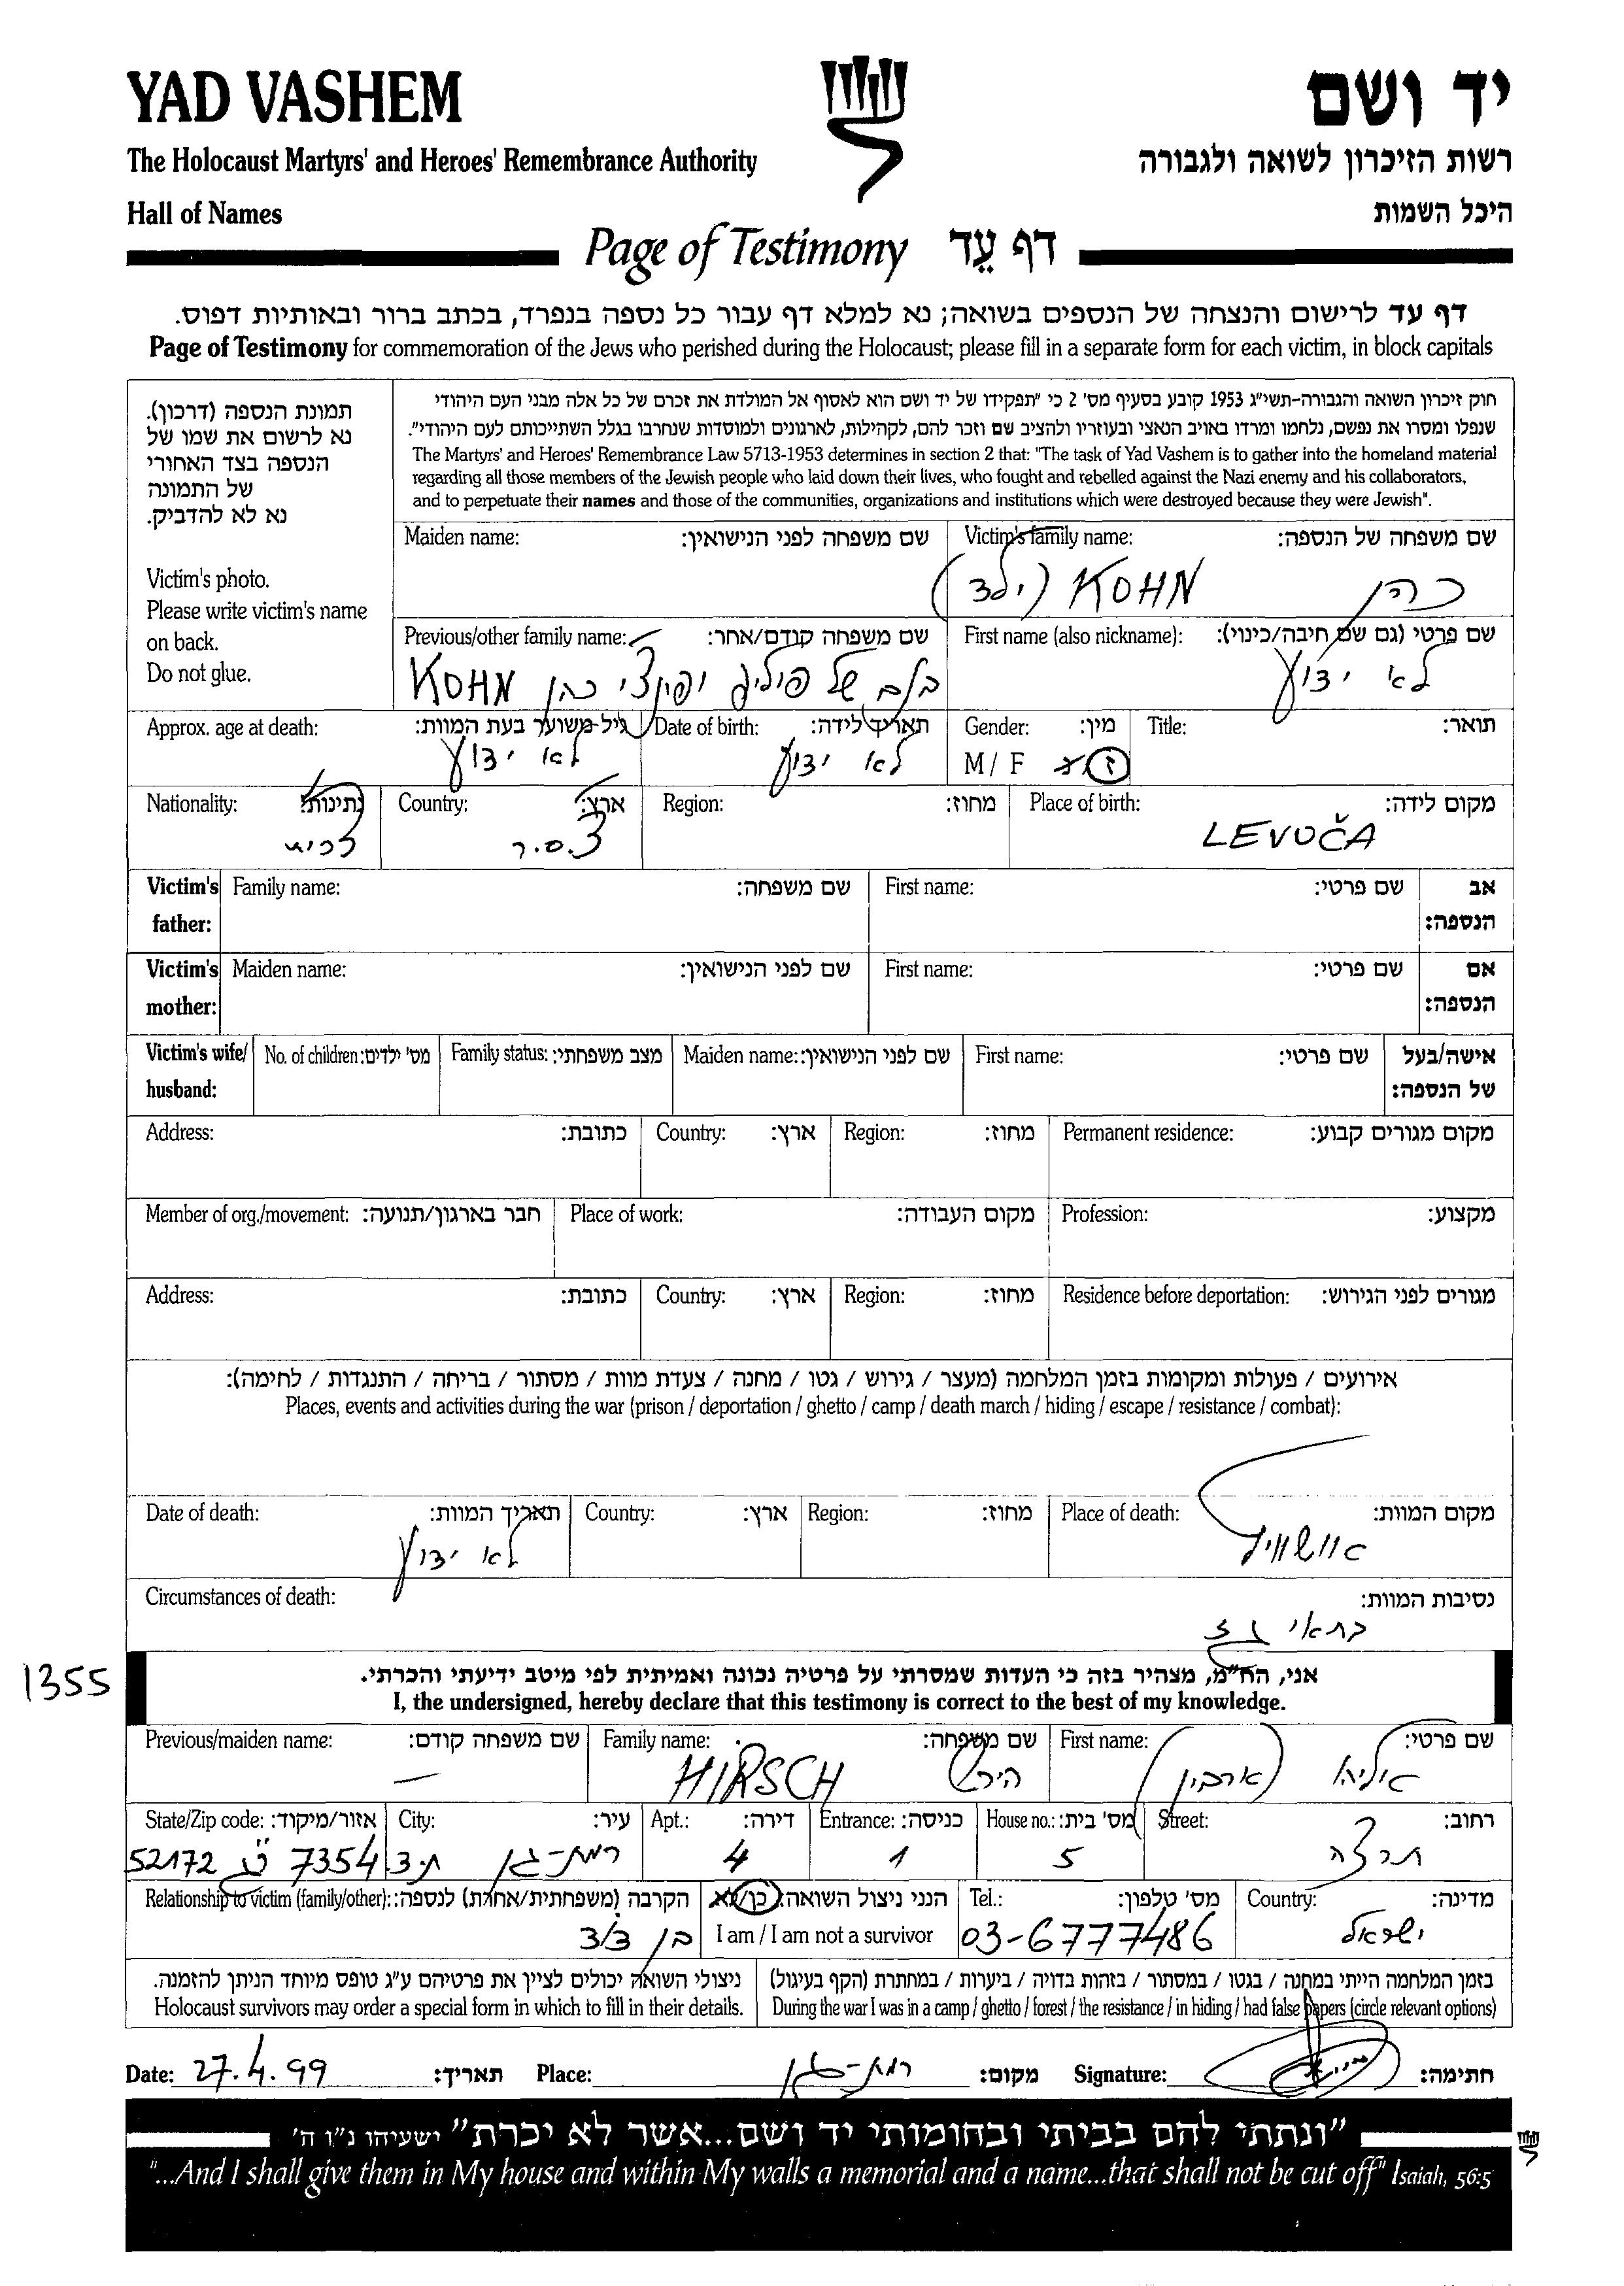 YAD VASHEM
יד ושם
The Holocaust Martyrs' and Heroes' Remembrance Authority
רשות הזיכרון לשואה ולגבורה
Hall of Names
היכל השמות
Page of Testimony דף עֵד
דף עד לרישום והנצחה של הנספים בשואה; נא למלא דף עבור כל נספה בנפרד, בכתב ברור ובאותיות דפוס.
Page of Testimony for commemoration of the Jews who perished during the Holocaust; please fill in a separate form for each victim, in block capitals
תמונת הנספה (דרכון).
נא לרשום את שמו של
הנספה בצד האחורי
של התמונה
נא לא להדביק.
Victim's photo.
Please write victim's name
on back.
Do not glue.
חוק זיכרון השואה והגבורה-תשי"ג 1953 קובע בסעיף מס' 2 כי "תפקידו של יד ושם הוא לאסוף אל המולדת את זכרם של כל אלה מבני העם היהודי
שנפלו ומסרו את נפשם, נלחמו ומרדו באויב הנאצי ובעוזריו ולהציב שם וזכר להם, לקהילות, לארגונים ולמוסדות שנחרבו בגלל השתייכותם לעם היהודי".
The Martyrs' and Heroes' Remembrance Law 5713-1953 determines in section 2 that: "The task of Yad Vashem is to gather into the homeland material
regarding all those members of the Jewish people who laid down their lives, who fought and rebelled against the Nazi enemy and his collaborators,
and to perpetuate their names and those of the communities, organizations and institutions which were destroyed because they were Jewish".
שם משפחה של הנספה: Victim's family name:
כהן KOHN (ילד)
שם משפחה לפני הנישואין: Maiden name:
שם פרטי (גם שם חיבה/כינוי): First name (also nickname):
לא ידוע
שם משפחה קודם/אחר: Previous/other family name:
של פוליג ופינצי כהן KOHN
תואר: Title:
מין: Gender:
ז M / F
תאריך לידה: Date of birth:
לא ידוע
גיל משוער בעת המוות: Approx. age at death:
לא ידוע
מקום לידה: Place of birth:
LEVOČA
מחוז: Region:
ארץ: Country:
צ.ס.ר
נתינות: Nationality:
צכית
אב הנספה: Victim's father:
שם פרטי: First name:
שם משפחה: Family name:
אם הנספה: Victim's mother:
שם פרטי: First name:
שם לפני הנישואין: Maiden name:
אישה/בעל של הנספה: Victim's wife/ husband:
שם פרטי: First name:
שם לפני הנישואין: Maiden name:
מצב משפחתי: Family status:
מס' ילדים: No. of children:
מקום מגורים קבוע: Permanent residence:
מחוז: Region:
ארץ: Country:
כתובת: Address:
מקצוע: Profession:
מקום העבודה: Place of work:
חבר בארגון/תנועה: Member of org./movement:
מגורים לפני הגירוש: Residence before deportation:
מחוז: Region:
ארץ: Country:
כתובת: Address:
אירועים / פעולות ומקומות בזמן המלחמה (מעצר / גירוש / גטו / מחנה / צעדת מוות / מסתור / בריחה / התנגדות / לחימה):
Places, events and activities during the war (prison / deportation / ghetto / camp / death march / hiding / escape / resistance / combat):
מקום המוות: Place of death:
אושוויץ
מחוז: Region:
ארץ: Country:
תאריך המוות: Date of death:
לא ידוע
נסיבות המוות: Circumstances of death:
בתאי גז
1355
אני, הח"מ, מצהיר בזה כי העדות שמסרתי על פרטיה נכונה ואמיתית לפי מיטב ידיעתי והכרתי.
I, the undersigned, hereby declare that this testimony is correct to the best of my knowledge.
שם פרטי: First name:
(ארבין)
שם משפחה: Family name:
הירש HIRSCH
שם משפחה קודם: Previous/maiden name:
—
רחוב: Street:
תרצה
מס' בית: House no.:
5
כניסה: Entrance:
1
דירה: Apt.:
4
עיר: City:
רמת-גן ת.ד
אזור/מיקוד: State/Zip code:
7354 52172
מדינה: Country:
ישראל
מס' טלפון: Tel.:
03-6777486
הנני ניצול השואה: כן/לא
I am / I am not a survivor
הקרבה (משפחתית/אחרת) לנספה: Relationship to victim (family/other):
בן דוד
בזמן המלחמה הייתי במחנה / בגטו / במסתור / בזהות בדויה / ביערות / במחתרת (הקף בעיגול)
During the war I was in a camp / ghetto / forest / the resistance / in hiding / had false papers (circle relevant options)
ניצולי השואה יכולים לציין את פרטיהם ע"ג טופס מיוחד הניתן להזמנה.
Holocaust survivors may order a special form in which to fill in their details.
Date: 27.4.99 תאריך: Place: רמת-גן מקום: Signature: חתימה:
"ונתתי להם בביתי ובחומותי יד ושם...אשר לא יכרת" ישעיהו נ"ו ה'
"...And I shall give them in My house and within My walls a memorial and a name...that shall not be cut off" Isaiah, 56:5